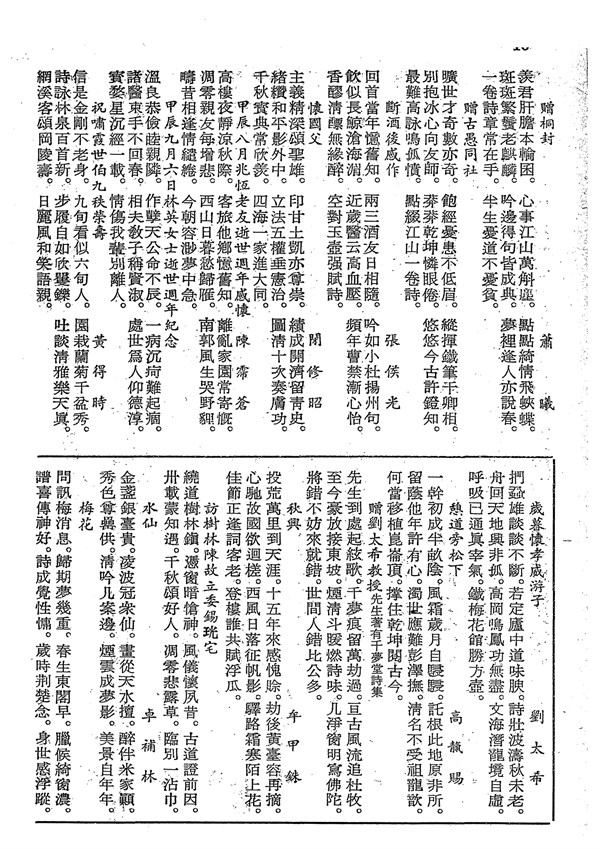 贈桐封　蕭曦
羨君肝膽本輪囷。心事江山萬斛塵。點點綺情飛蛺蝶。
斑斑繁鬢老麒麟。吟邊得句皆成典。夢裡逢人亦說春。
一卷詩章常在手。半生憂道不憂貧。
贈古愚同社
曠世才奇數亦奇。飽經憂患不低眉。縱揮鐵筆干卿相。
別抱冰心向友師。莽莽乾坤憐眼倦。悠悠今古許鐙知。
最難高詠鳴孤憤。點綴江山一卷詩。
斷酒後感作　張俟光
回首當年憶舊知。兩三酒友日相隨。吟如小杜揚州句。
飲似長鯨滄海湄。近歲醫云高血壓。頻年曹禁漸心怡。
香醪清醥無緣醉。空對玉壺强賦詩。
懷國父　閔修昭
主義精深頌聖雄。印甘土凱亦尊崇。績成開濟留靑史。
緒纘和平影外中。立法五權垂憲治。圖清十次奏膚功。
千秋寶典常欣羨。四海一家進大同。
甲辰八月兆恆老友逝世週年感懷　陳霈蒼
高樓夜靜涼秋際。客旅他鄉憶舊知。離亂家園常寄慨。
凋零親友每增悲。西山日暮愁歸雁。南郭風生哭野貍。
疇昔相逢情繾綣。今朝容渺夢中急。
甲辰九月六日林英女士逝世週年紀念
溫良恭儉睦親隣。作孽天公命不辰。一病沉疴難起涸。
諸醫束手不回春。相夫敎子稱賢淑。處世爲人仰德淳。
寶婺星沉經一載。情傷我輩別離人。
祝嘯霞世伯九秩榮壽　黃得時
信是金剛不老身。九旬看似六旬人。園栽蘭菊千盆秀。
詩詠林泉百首新。步履自如欣矍鑠。吐談清雅樂天眞。
網溪客頌岡陵壽。日麗風和笑語親。
歲暮懷孝威滸子　劉太希
捫蝨雄談談不斷。若定廬中道味腴。詩壯波濤秋未老。
舟回天地興非孤。高岡鳴鳳功無盡。文海潛龍境自虛。
呼吸已通眞宰氣。鐵梅花館勝方壺。
憩道旁松下　高馥賜
一幹初成半畝陰。風霜歲月自駸駸。託根此地原非所。
留蔭他年許有心。濁世應難彭澤撫。清名不受祖龍歆。
何當移植崑崙頂。撑住乾坤閱古今。
贈劉太希教授先生著有千夢堂詩集
先生到處起絃歌。千夢痕留萬劫過。亘古風流追杜牧。
至今豪放接東坡。煙清斗暖燃詩味。几淨窗明寫佛陀。
將錯不妨來就錯。世間人錯比公多。
秋興　牟甲銖
投荒萬里到天涯。十五年來感愧賖。劫後黃臺容再摘。
心馳故國欲迴槎。西風日落征帆影。驛路霜寒陌上花。
佳節正逢詞客老。登樓誰共賦浮瓜。
訪樹林陳故立委錫珖宅
繞道樹林鎭。憑窗暗愴神。風儀懷夙昔。古道證前因。
卅載蒙知遇。千秋頌好人。凋零悲露草。臨別一沾巾。
水仙　卓補林
金盞銀臺貴。凌波冠衆仙。晝從天水擅。醉伴米家顚。
秀色尊彝供。清吟几案邊。煙雲成夢影。美景自年年。
梅花
問訊梅消息。歸期夢幾重。春生東閣早。臘候綺窗濃。
譜喜傳神好。詩成覺性慵。歲時荆楚念。身世感浮蹤。